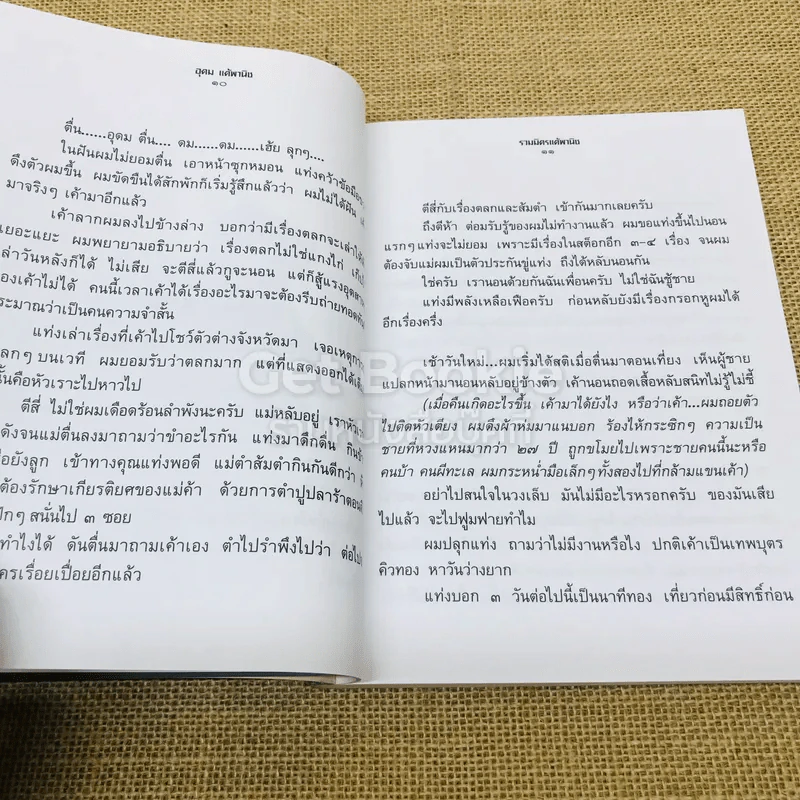 อุดม แต้พานิช
๑๐
ตื่น......อุดม ตื่น.... ดม......ดม......เฮ้ย ลุกๆ....
ในฝันผมไม่ยอมตื่น เอาหน้าซุกหมอน แท่งคว้าข้อมือ
ดึงตัวผมขึ้น ผมขัดขืนได้สักพักก็เริ่มรู้สึกแล้วว่า ผมไม่ได้ฝัน
มาจริงๆ เค้ามาอีกแล้ว
เค้าลากผมลงไปข้างล่าง บอกว่ามีเรื่องตลกจะเล่าให้
เยอะแยะ ผมพยายามอธิบายว่า เรื่องตลกไม่ใช่แกงไก่
ล่าวันหลังก็ได้ ไม่เสีย จะตีสี่แล้วกูจะนอน แต่ก็สู้แรง
องเค้าไม่ได้ คนนี้เวลาเค้าได้เรื่องอะไรมาจะต้องรีบถ่ายทอด
ระมาณว่าเป็นคนความจำสั้น
แท่งเล่าเรื่องที่เค้าไปโชว์ตัวต่างจังหวัดมา เจอเหตุ
ลกๆ บนเวที ผมยอมรับว่าตลกมาก แต่ที่แสดงออกได้
นั้นคือหัวเราะไปหาวไป
ตีสี่ ไม่ใช่ผมเดือดร้อนลำพังนะครับ แม่หลับอยู่ เรา
ดังจนแม่ตื่นลงมาถามว่าขำอะไรกัน แท่งมาดึกดื่น
อยังลูก เข้าทางคุณแท่งพอดี แม่ตำส้มตำกินกันดีกว่า
ต้องรักษาเกียรติยศของแม่ค้า ด้วยการตำปูปลาร้าตอน
ปึกๆ สนั่นไป ๓ ซอย
ทำไงได้ ดันตื่นมาถามเค้าเอง ตำไปรำพึงไปว่า ต่อไป
ครเรื่อยเปื่อยอีกแล้ว
รวมมิตรแต้พานิช
๑๑
ตีสี่กับเรื่องตลกและส้มตำ เข้ากันมากเลยครับ
ถึงตีห้า ต่อมรับรู้ของผมไม่ทำงานแล้ว ผมขอแท่งขึ้นไปนอน
แรกๆ แท่งจะไม่ยอม เพราะมีเรื่องในสต๊อกอีก ๓-๔ เรื่อง จนผม
ต้องจับแม่ผมเป็นตัวประกันขู่แท่ง ถึงได้หลับนอนกัน
ใช่ครับ เรานอนด้วยกันฉันเพื่อนครับ ไม่ใช่ฉันชู้ชาย
แท่งมีพลังเหลือเฟือครับ ก่อนหลับยังมีเรื่องกรอกหูผมได้
อีกเรื่องครึ่ง
เช้าวันใหม่...ผมเริ่มได้สติเมื่อตื่นมาตอนเที่ยง เห็นผู้ชาย
แปลกหน้ามานอนหลับอยู่ข้างตัว เค้านอนถอดเสื้อหลับสนิทไม่รู้ไม่ชี้
(เมื่อคืนเกิดอะไรขึ้น เค้ามาได้ยังไง หรือว่าเค้า...ผมถอยตัว
ไปติดหัวเตียง ผมดึงผ้าห่มมาแนบอก ร้องไห้กระซิกๆ ความเป็น
ชายที่หวงแหนมากว่า ๒๗ ปี ถูกขโมยไปเพราะชายคนนี้นะหรือ
คนบ้า คนผีทะเล ผมกระหน่ำมือเล็กๆ ทั้งสองไปที่กล้ามแขนเค้า)
อย่าไปสนใจในวงเล็บ มันไม่มีอะไรหรอกครับ ของมันเสีย
ไปแล้ว จะไปฟูมฟายทำไม
ผมปลุกแท่ง ถามว่าไม่มีงานหรือไง ปกติเค้าเป็นเทพบุตร
คิวทอง หาวันว่างยาก
แท่งบอก ๓ วันต่อไปนี้เป็นนาทีทอง เที่ยวก่อนมีสิทธิ์ก่อน
Get Bookie